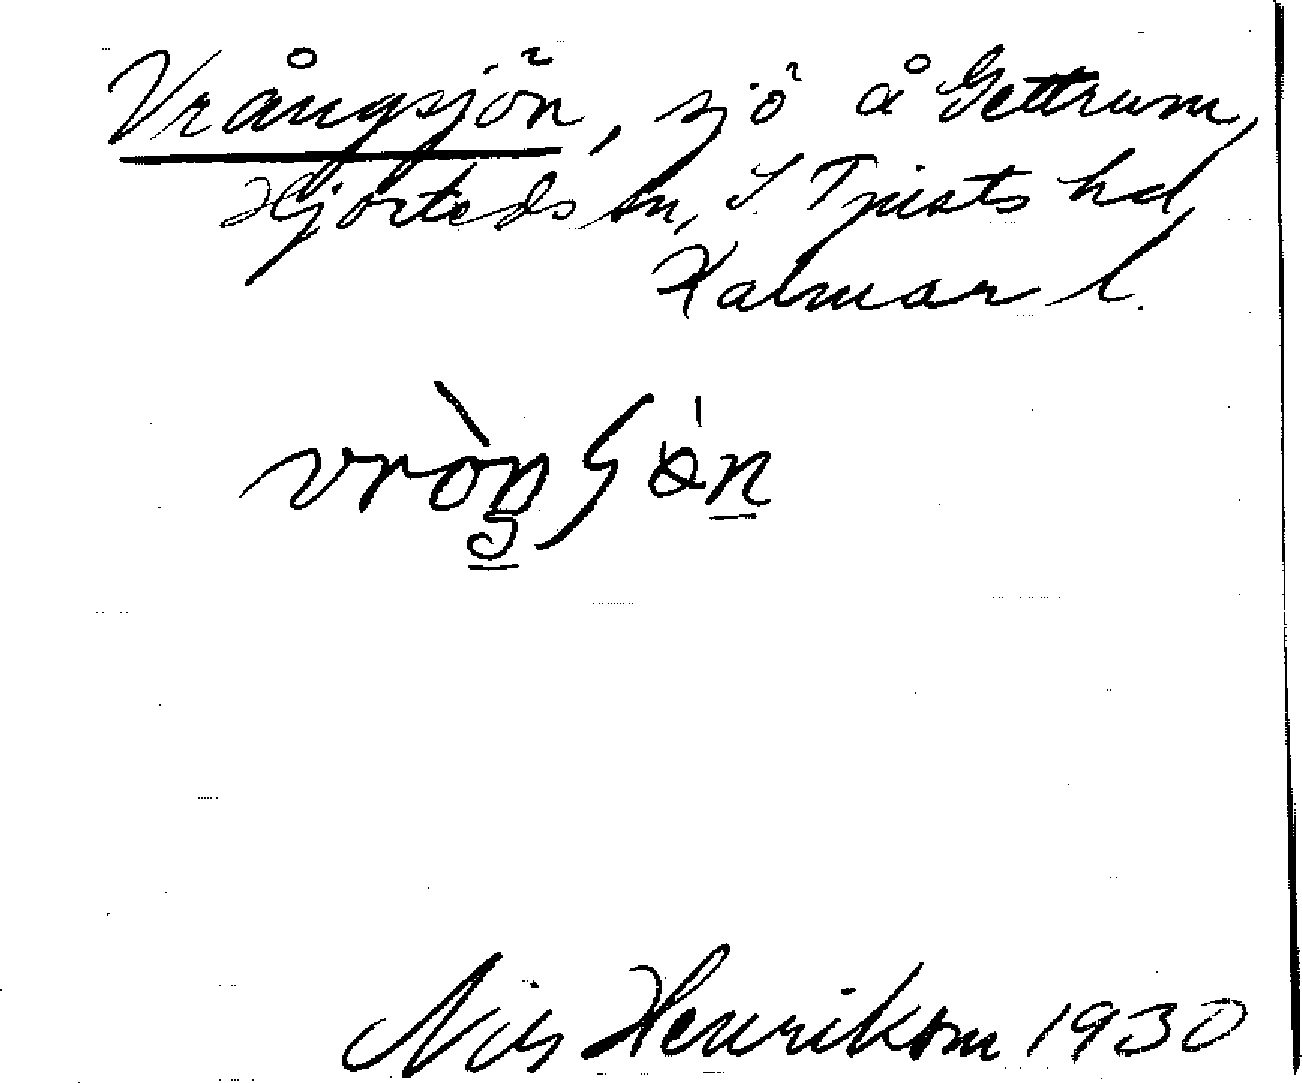 Vrångsjön, sjö å Gettrum,
Hjorteds sn, S. Tjusts hd,
Kalmar l.
vròŋʃớn
Nils Henrikson 1930